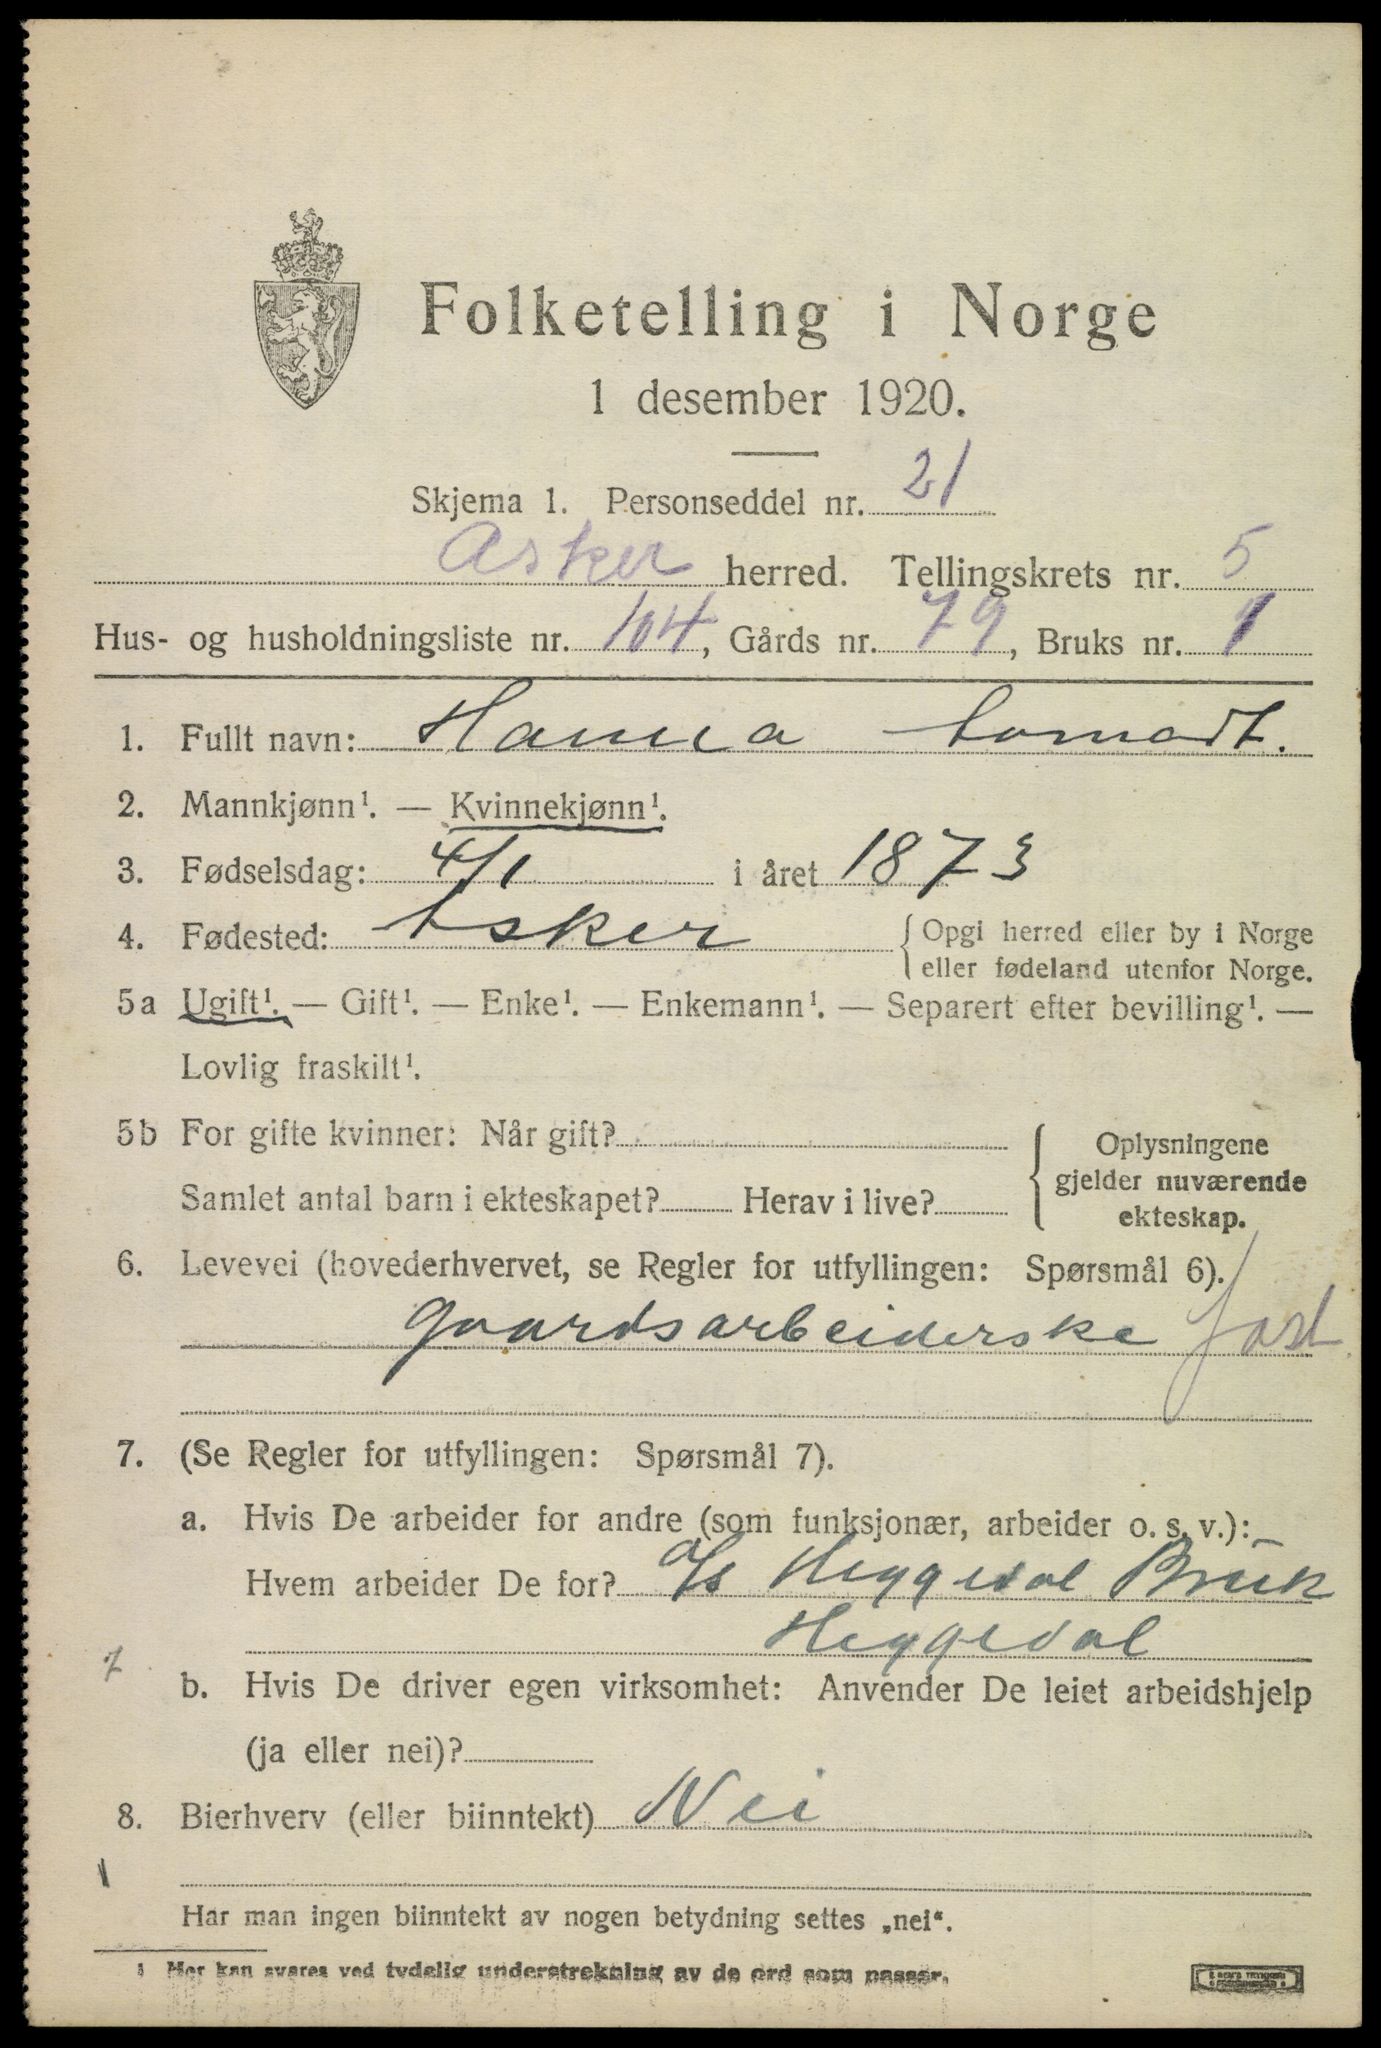 Folketelling i Norge
1 desember 1920.
Skjema 1. Personseddel nr. 21
Asker herred. Tellingskrets nr. 5
Hus- og husholdningsliste nr. 104, Gårds nr. 79, Bruks nr. 1
1. Fullt navn: Hanna
2. Mannkjønn¹. — Kvinnekjønn¹.
3. Fødselsdag: 4/1 i året 1873
4. Fødested: Asker { Opgi herred eller by i Norge
eller fødeland utenfor Norge.
5a Ugift¹. — Gift¹. — Enke¹. — Enkemann¹. — Separert efter bevilling¹. —
Lovlig fraskilt¹.
5b For gifte kvinner: Når gift?
Samlet antal barn i ekteskapet? Herav i live?
{ Oplysningene
gjelder nuværende
ekteskap.
6. Levevei (hovederhvervet, se Regler for utfyllingen: Spørsmål 6).
gaardsarbeiderske fast
7. (Se Regler for utfyllingen: Spørsmål 7).
a. Hvis De arbeider for andre (som funksjonær, arbeider o. s. v.):
Hvem arbeider De for? A/S Heggedal Bruk
Heggedal
7
b. Hvis De driver egen virksomhet: Anvender De leiet arbeidshjelp
(ja eller nei)?
8. Bierhverv (eller biinntekt) Nei
Har man ingen biinntekt av nogen betydning settes „nei“.
¹ Her kan svares ved tydelig understrekning av de ord som passer.